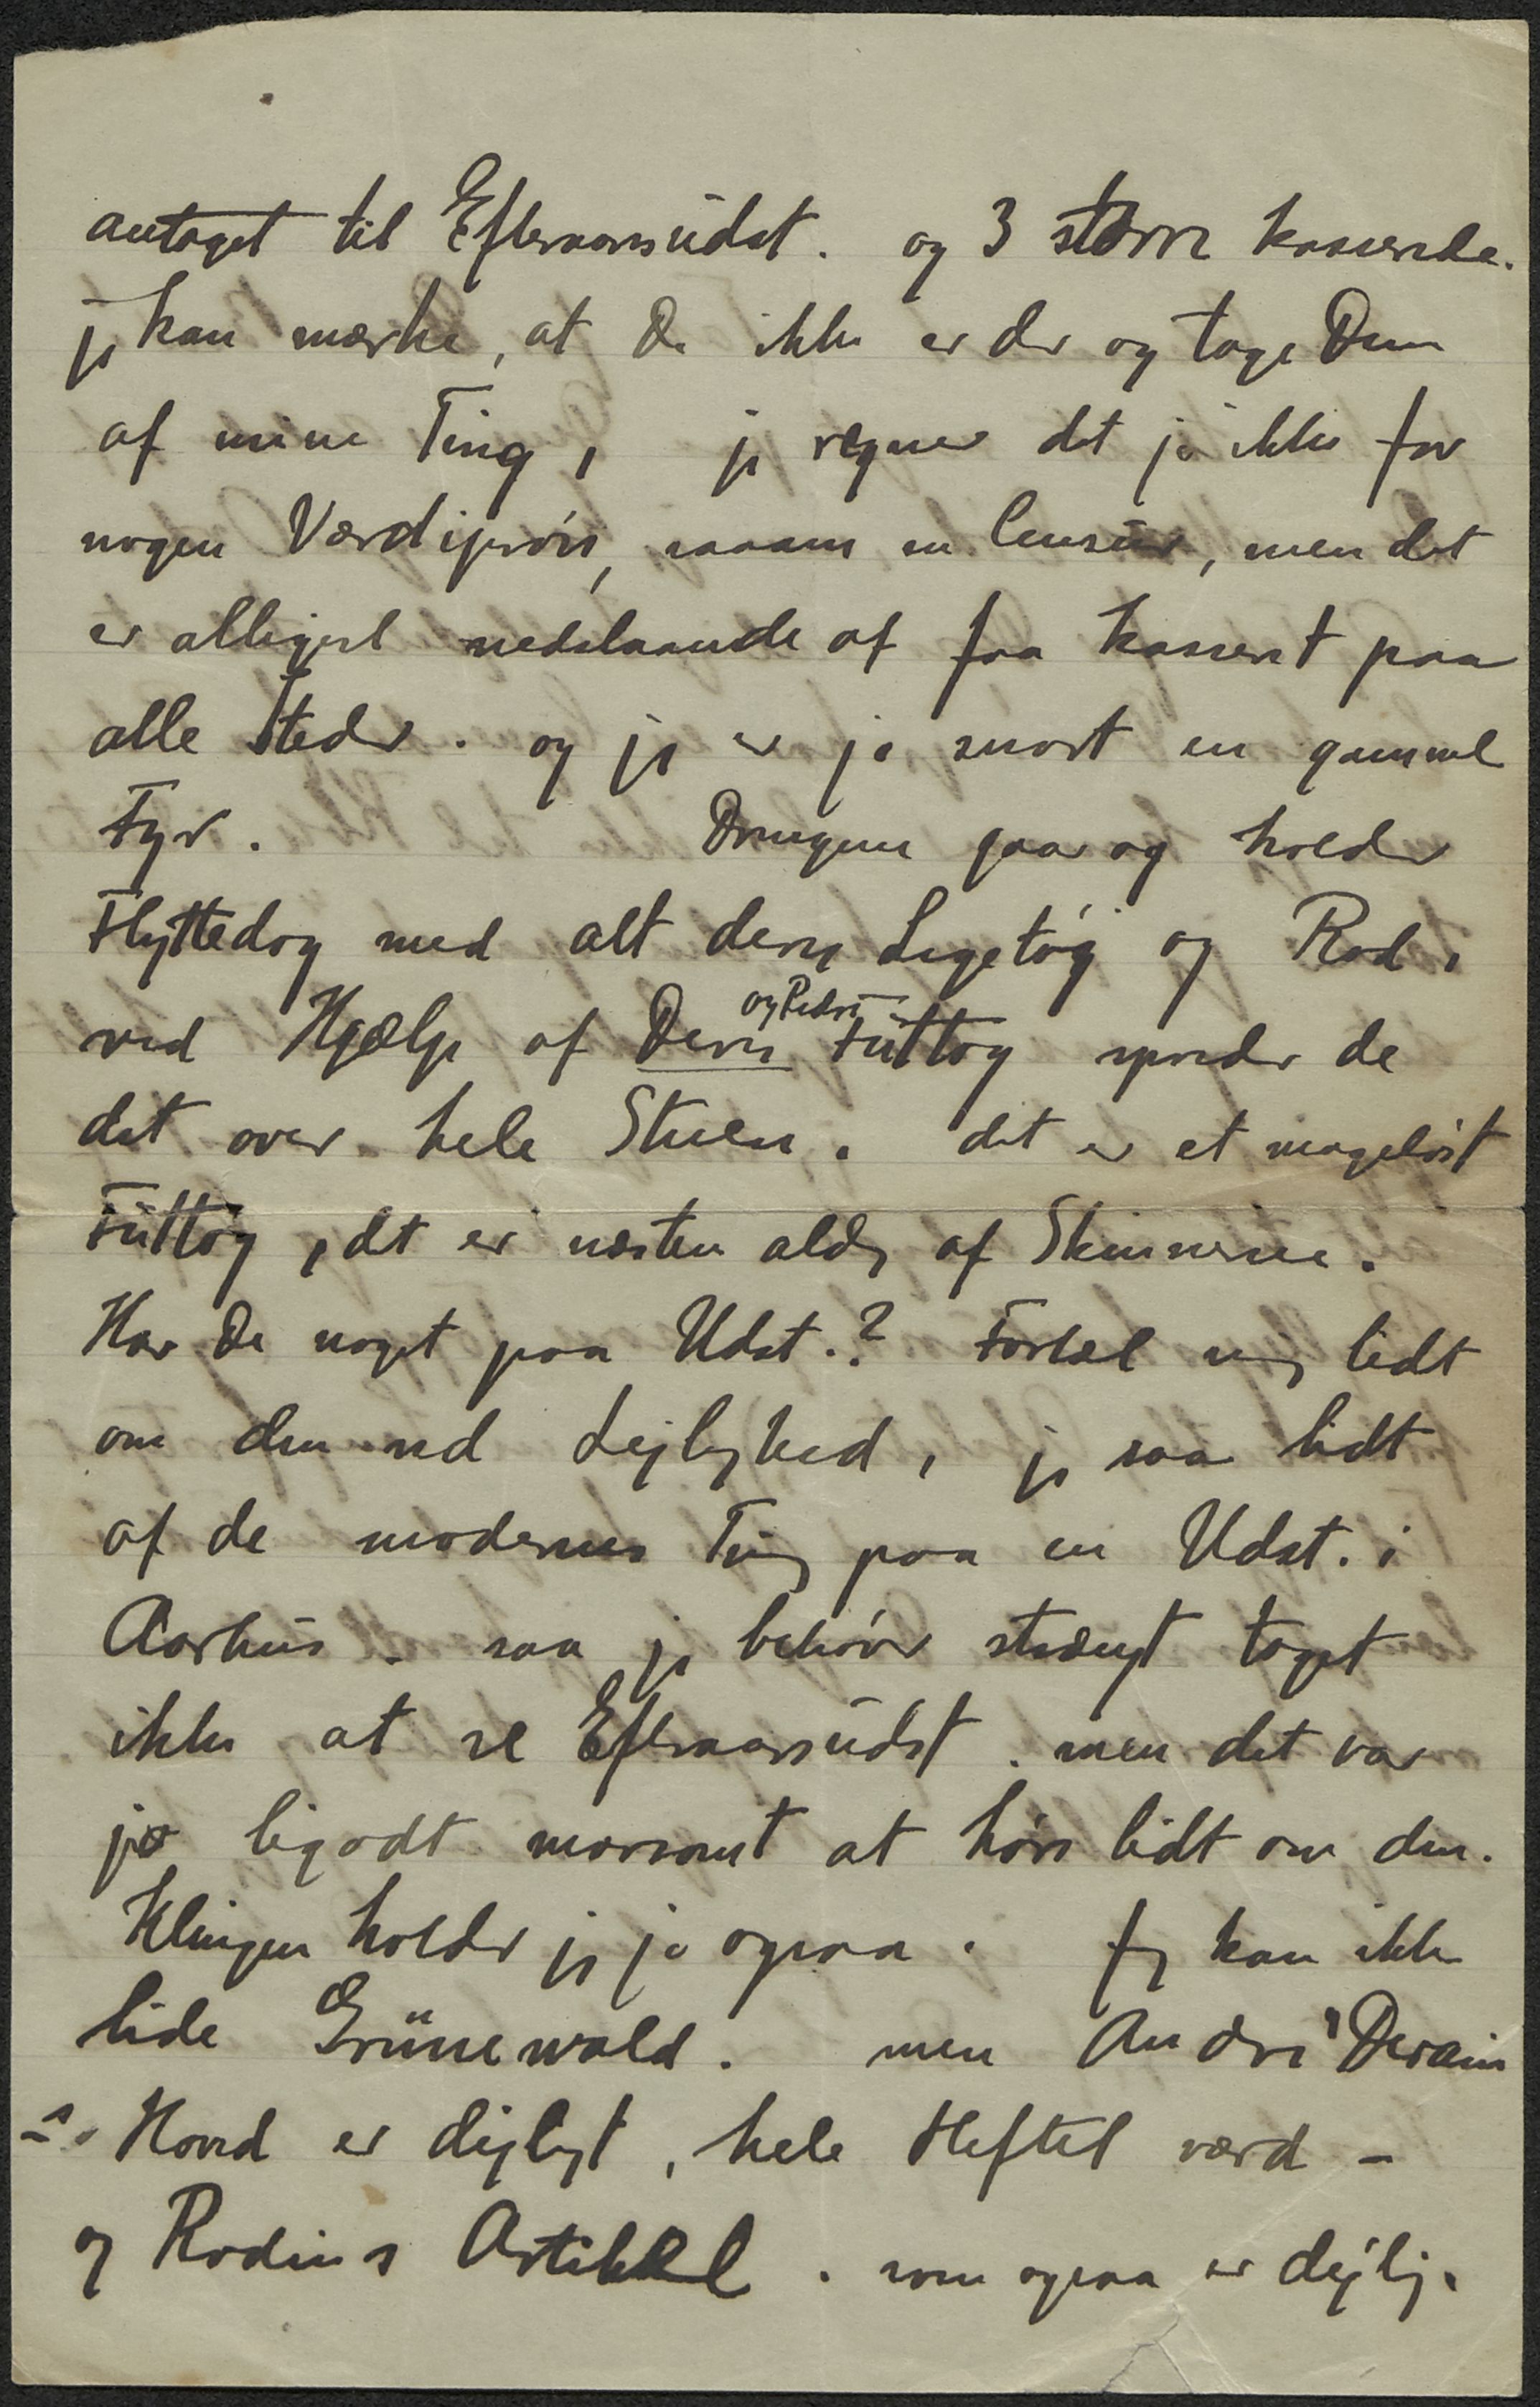 antaget til Efteraarsudst. og 3 større kasserede.
jg kan mærke, at De ikke er der og tage Dem
af mine Ting, jg regner det jo ikke for
nogen Værdiprøve, saaam en Censur, men det
er alligevel nedslaaende at faa kasseret paa
alle Steder. og jg er jo snart en gammel
Fyr. Drengene gaar og holder
Flyttedag med alt deres Legetøj og Rod,
ved Hjælp af Deres og Pedros Futtog spreder de
det over hele Stuen. det er et mageløst
Futtog, det er næsten aldrig af Skinnerne.
Har De noget paa Udst.? Fortæl mig lidt
om den ved Lejlighed, jg saa lidt
af de modernes Ting paa en Udst. i
Aarhus - saa jg behøver strængt taget
ikke at se Efteraarsudst. men det var
jo ligodt morsomt at høre lidt om den.
Klingen holder jg jo ogsaa. Jg kan ikke
lide Grünewald. men André Derain
's. Hoved er dejligt, hele Heftet værd -
og Rodins Artikkel. som ogsaa er dejlig.